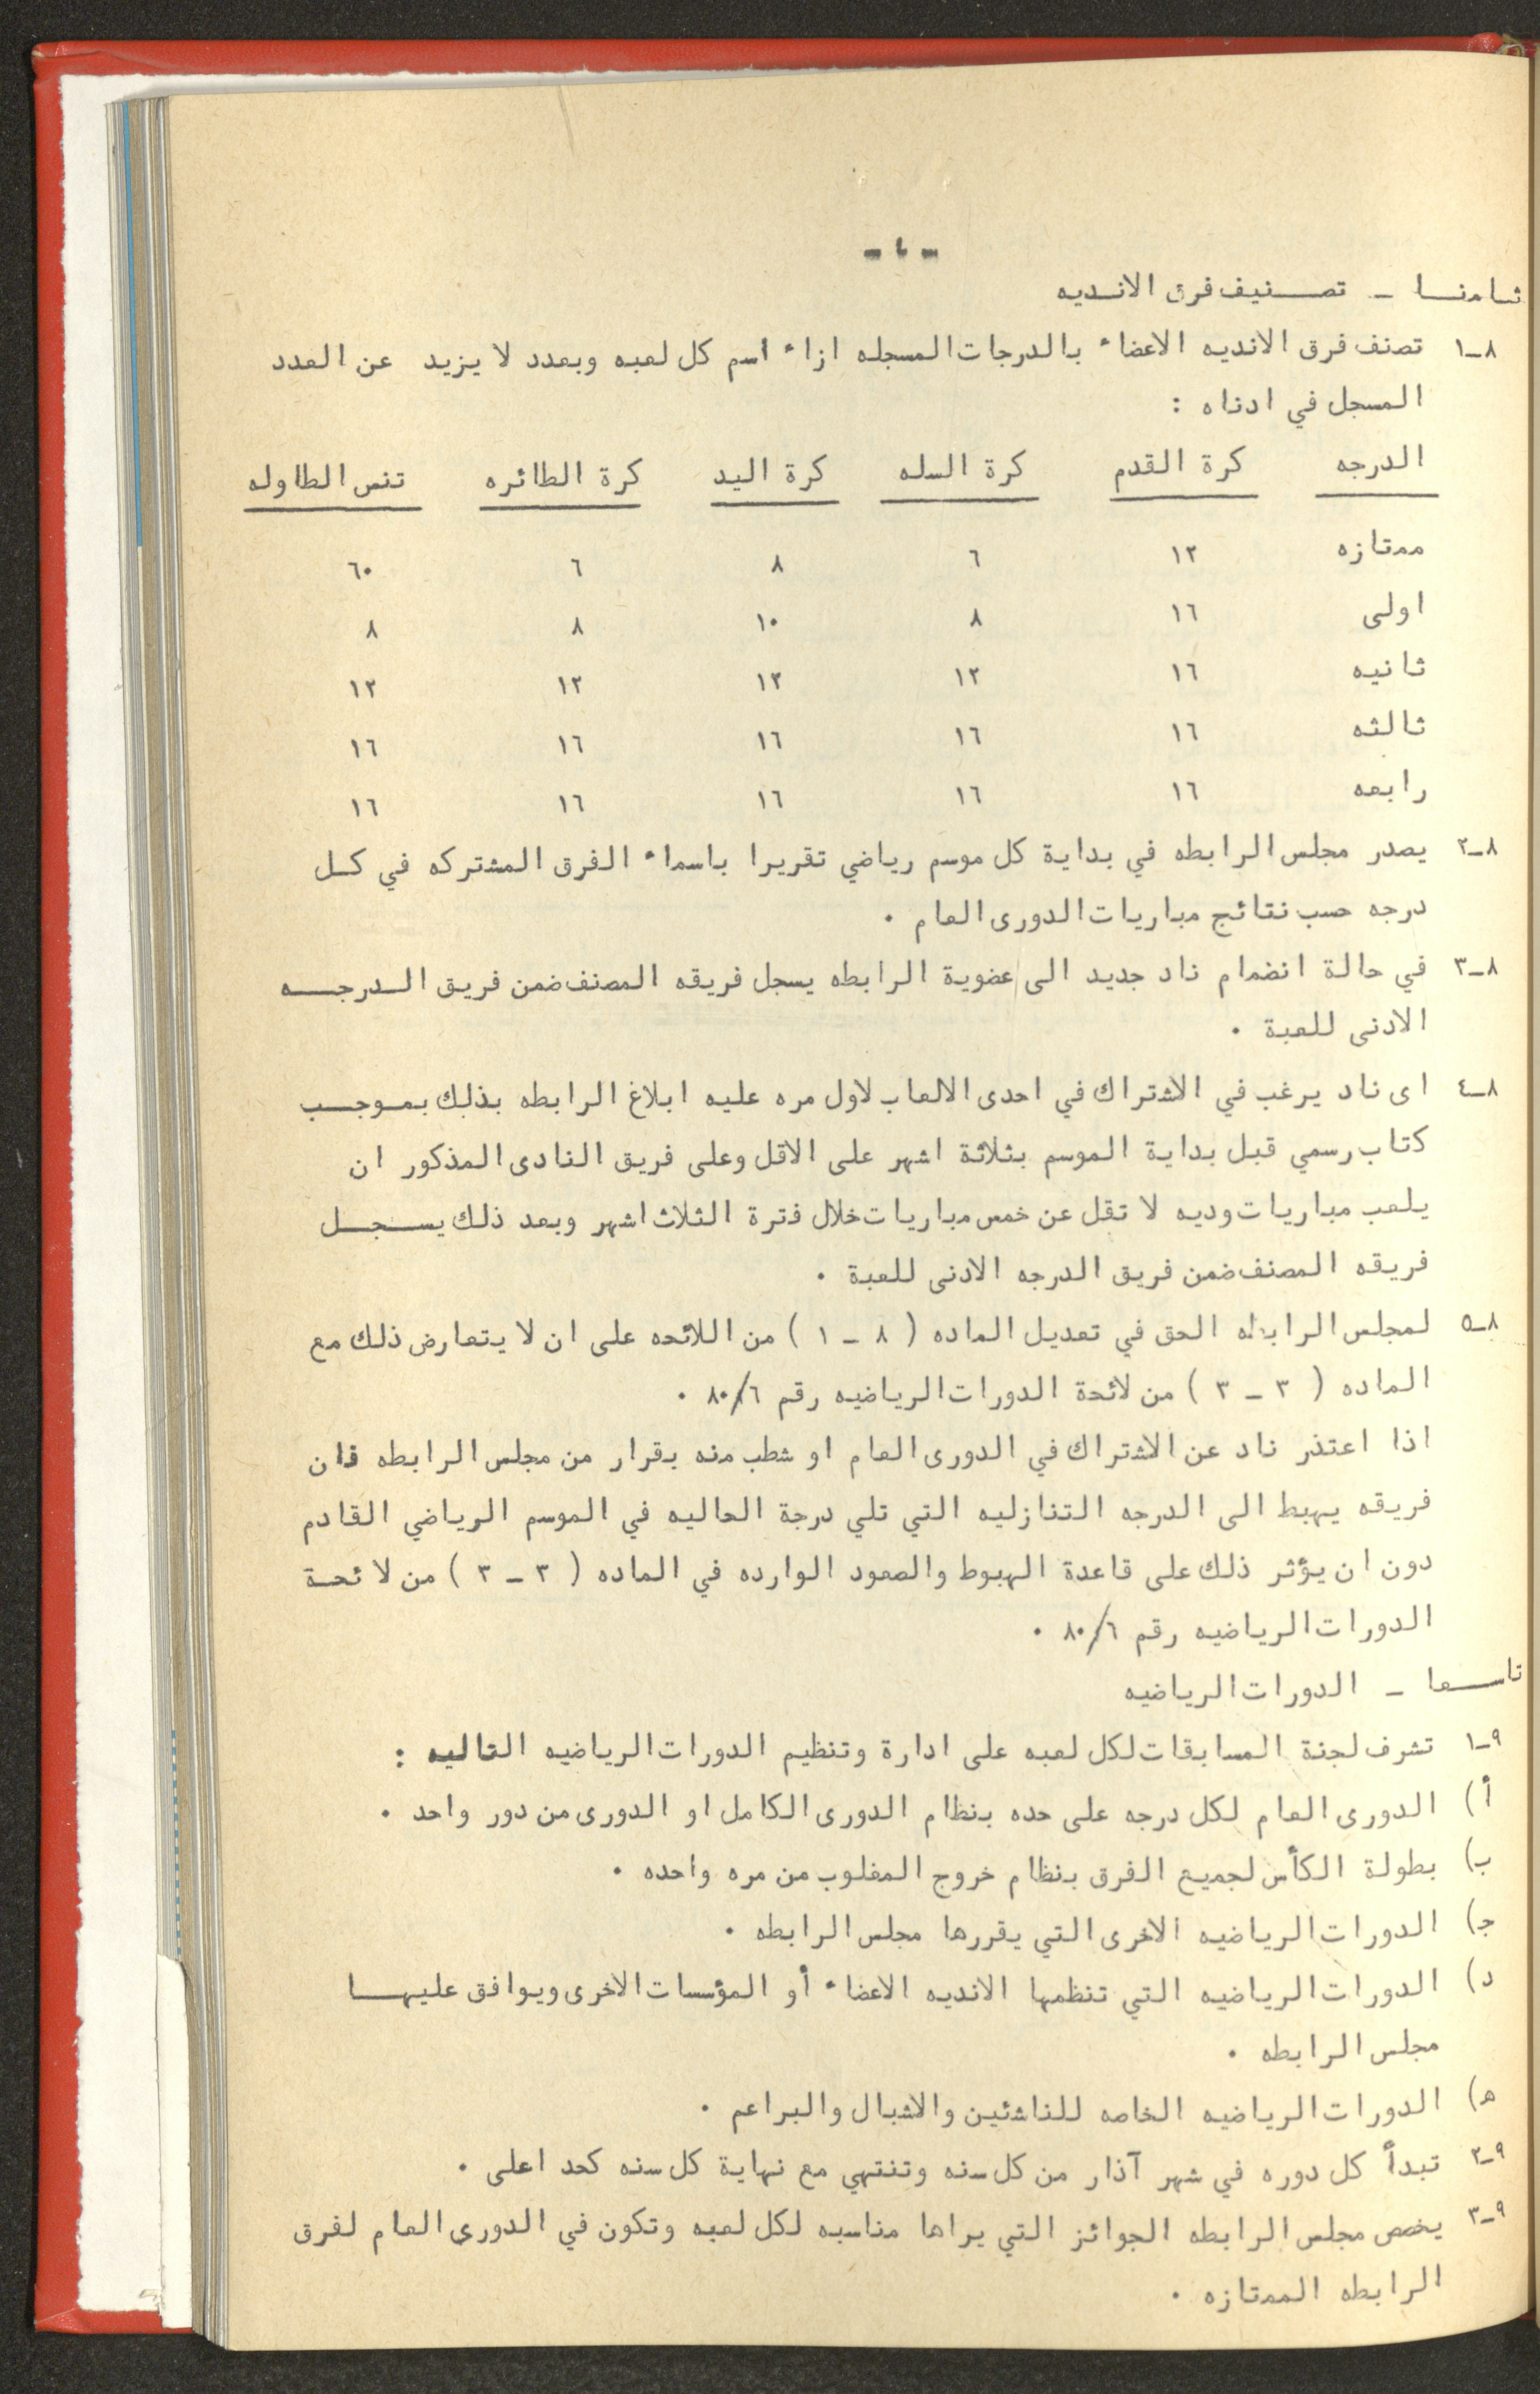 ثامنا - تصنيف فرق الانديه
٨-١ تصنف فرق الانديه الاعضاء بالدرجات المسجله ازاء اسم كل لعبه وبعدد لا يزيد عن العدد
المسجل في ادناه :
الدرجه كرة القدم كرة السله كرة اليد كرة الطائره تنس الطاوله
ممتازه ١٢ ٦ ٨ ٦ ٦٠
اولى ١٦ ٨ ١٠ ٨ ٨
ثانيه ١٦ ١٢ ١٢ ١٢ ١٢
ثالثه ١٦ ١٦ ١٦ ١٦ ١٦
رابعه ١٦ ١٦ ١٦ ١٦ ١٦
٨-٢ يصدر مجلس الرابطه في بداية كل موسم رياضي تقريرا باسماء الفرق المشتركه في كل
درجه حسب نتائج مباريات الدورى العام .
٨-٣ في حالة انضمام ناد جديد الى عضوية الرابطه يسجل فريقه المصنف ضمن فريق الدرجه
الادنى للعبة .
٨-٤ اى ناد يرغب في الاشتراك في احدى الالعاب لاول مره عليه ابلاغ الرابطه بذلك بموجب
كتاب رسمي قبل بداية الموسم بثلاثة اشهر على الاقل وعلى فريق النادى المذكور ان
يلعب مباريات وديه لا تقل عن خمس مباريات خلال فترة الثلاث اشهر وبعد ذلك يسجل
فريقه المصنف ضمن فريق الدرجه الادنى للعبة .
٨-٥ لمجلس الرابطه الحق في تعديل الماده ( ٨ - ١ ) من اللائحه على ان لا يتعارض ذلك مع
الماده ( ٣ - ٣ ) من لائحة الدورات الرياضيه رقم ٨٠/٦ .
اذا اعتذر ناد عن الاشتراك في الدورى العام او شطب منه بقرار من مجلس الرابطه فان
فريقه يهبط الى الدرجه التنازليه التي تلي درجة الحاليه في الموسم الرياضي القادم
دون ان يؤثر ذلك على قاعدة الهبوط والصعود الوارده في الماده ( ٣ - ٣ ) من لائحة
الدورات الرياضيه رقم ٨٠/٦ .
تاسعا - الدورات الرياضيه
٩-١ تشرف لجنة المسابقات لكل لعبه على ادارة وتنظيم الدورات الرياضيه التاليه :
أ) الدورى العام لكل درجه على حده بنظام الدورى الكامل او الدورى من دور واحد .
ب) بطولة الكأس لجميع الفرق بنظام خروج المغلوب من مره واحده .
ج) الدورات الرياضيه الاخرى التي يقررها مجلس الرابطه .
د) الدورات الرياضيه التي تنظمها الانديه الاعضاء أو المؤسسات الاخرى ويوافق عليها
مجلس الرابطه .
ه) الدورات الرياضيه الخاصه للناشئين والاشبال والبراعم .
٩-٢ تبدأ كل دوره في شهر آذار من كل سنه وتنتهي مع نهاية كل سنه كحد اعلى .
٩-٣ يخصص مجلس الرابطه الجوائز التي يراها مناسبه لكل لعبه وتكون في الدورى العام لفرق
الرابطه الممتازه .